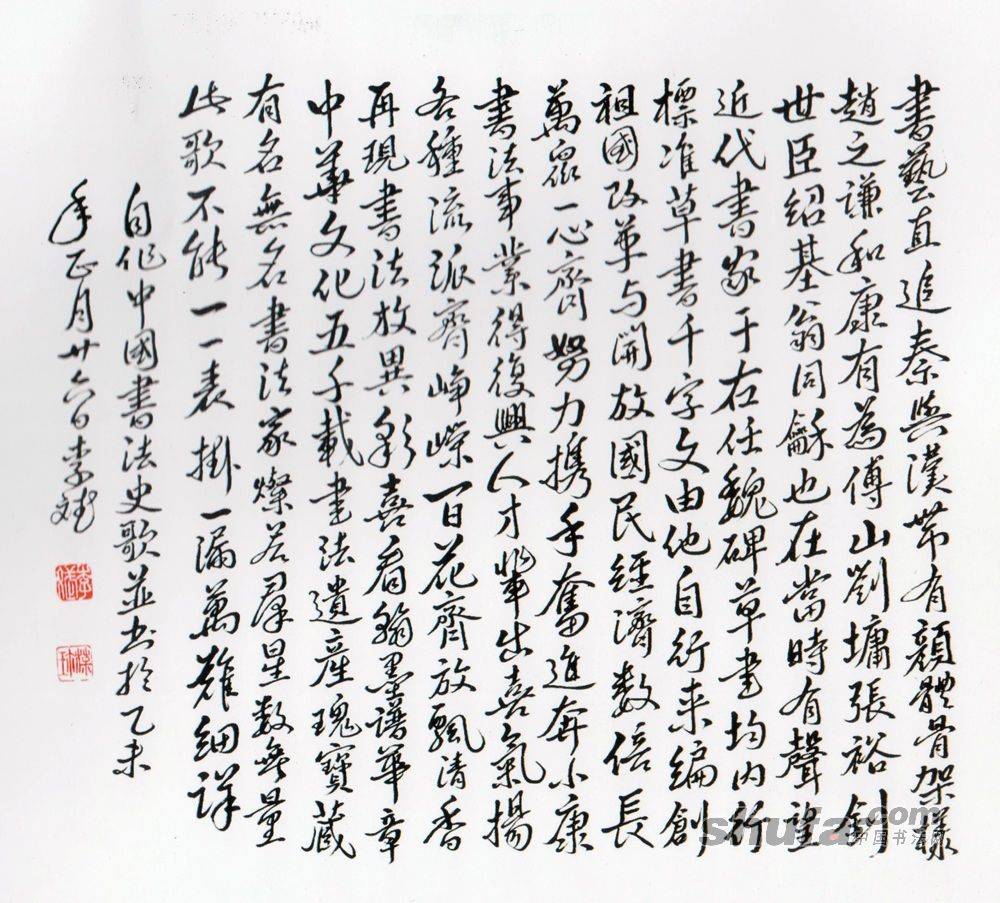 書藝直追秦與漢帶有顏體骨架樣
趙之謙和康有為傅山劉墉張裕釗
世臣紹基翁同龢也在當時有聲望
近代書家于右任魏碑草書均内行
標准草書千字文由他自行来編創
祖國改革与開放國民經濟数倍長
萬眾一心齊努力携手奮進奔小康
書法事業得復興人才輩出喜氣揚
各種流派齊崢嶸百花齊放飄清香
再現書法放異彩喜看翰墨譜華章
中華文化五千載書法遺產瑰寶藏
有名無名書法家燦若羣星数無量
此歌不能一一表掛一漏萬難細詳
自作中國書法史歌並书於乙未
年正月廿六日李斌
shufa.com
中国书法网